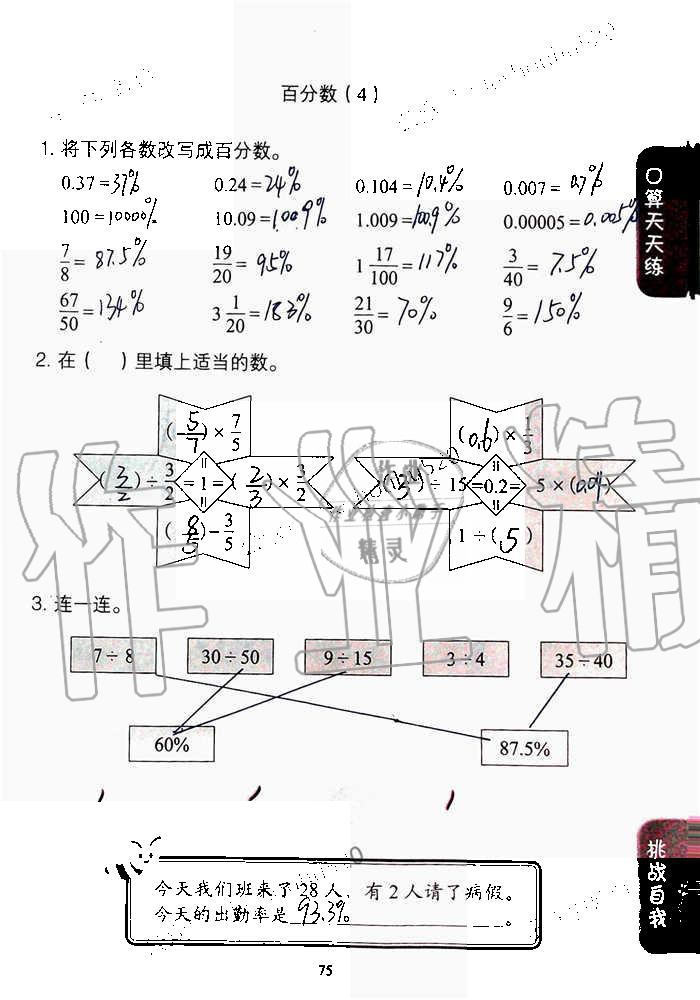 百分数（4）
1. 将下列各数改写成百分数。
0.37=37% 0.24=24% 0.104=10.4% 0.007=0.7%
100=10000% 10.09=1009% 1.009=100.9% 0.00005=0.005%
7/8=87.5% 19/20=95% 1 17/100=117% 3/40=7.5%
67/50=134% 3 1/20=183% 21/30=70% 9/6=150%
2. 在（ ）里填上适当的数。
(5/7)×7/5 (0.6)×1/3
(3/2)÷3/2 =1= (2/3)×3/2 ÷15 =0.2= 5×(0.04)
(8/5)-3/5 1÷(5)
3. 连一连。
7÷8 30÷50 9÷15 3÷4 35÷40
60% 87.5%
今天我们班来了28人，有2人请了病假。
今天的出勤率是 93.3% 。
75
算天天练
挑战自我
作业精灵
作业精灵